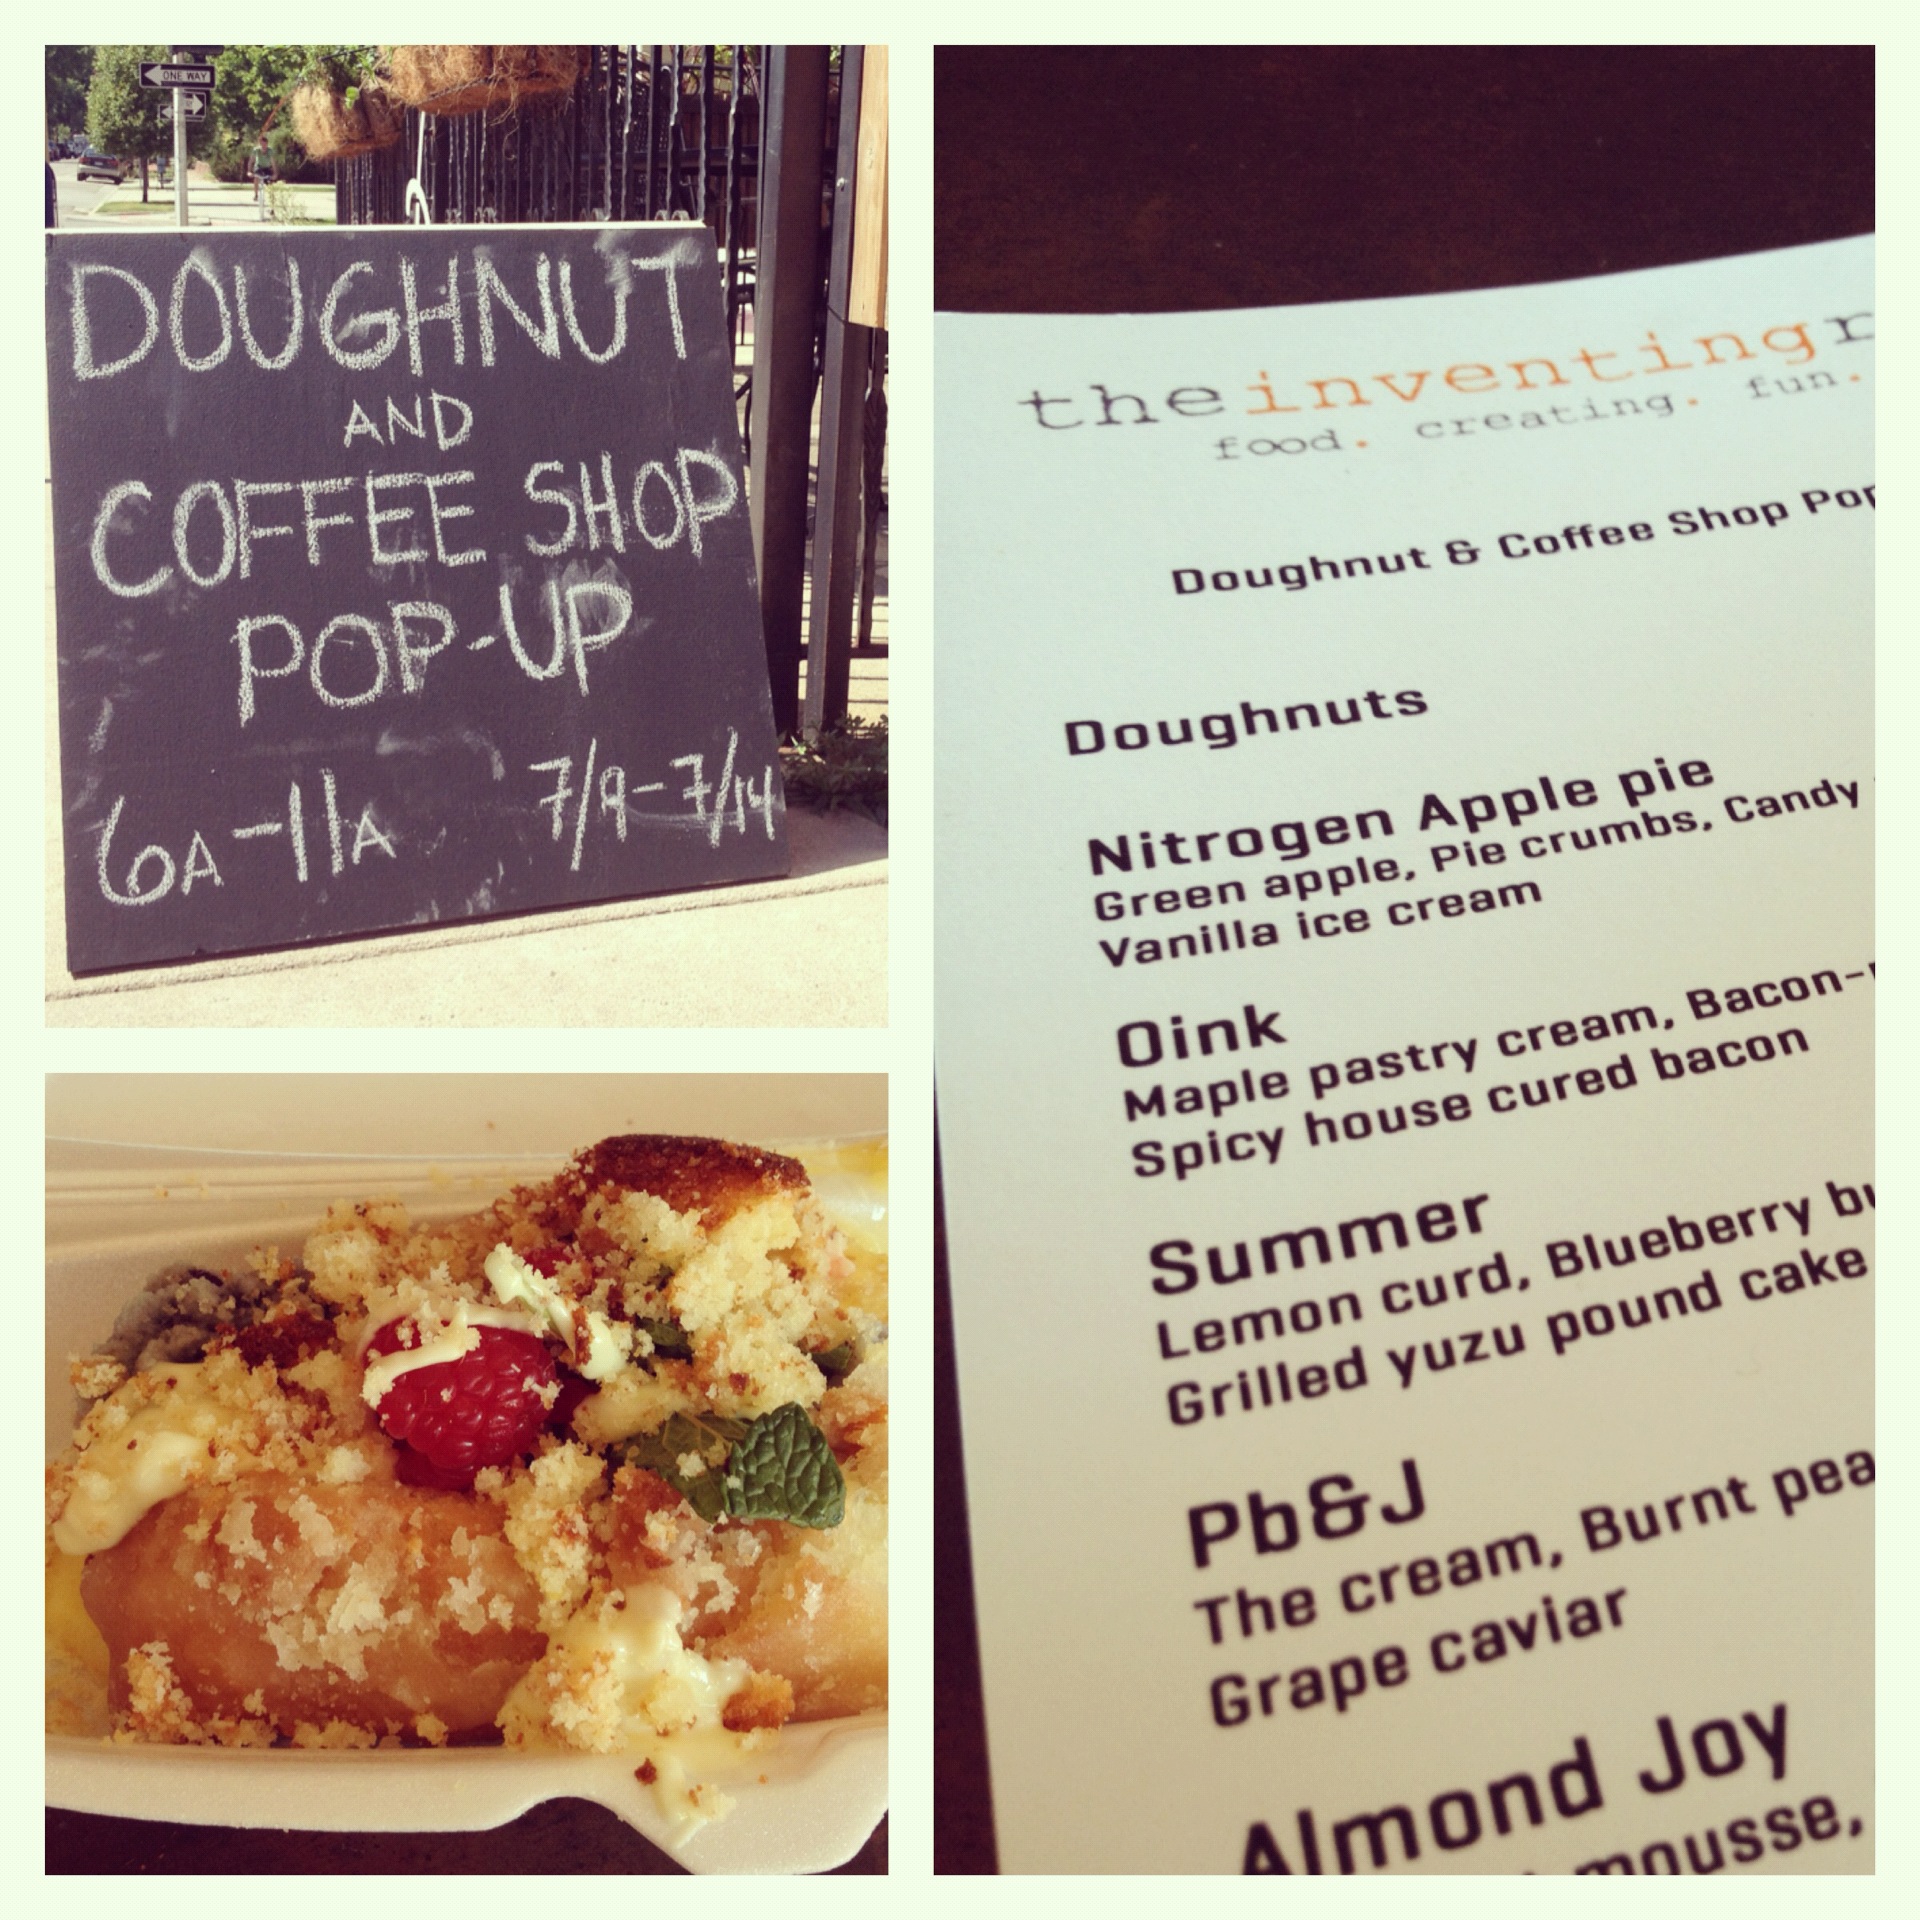 ONE WAY
DOUGHNUT
AND
COFFEE SHOP
POP-UP
6A-11A 7/9-7/14
theinventingr
food. creating. fun.
Doughnut & Coffee Shop Pop
Doughnuts
Nitrogen Apple pie
Green apple, Pie crumbs, Candy
Vanilla ice cream
Oink
Maple pastry cream, Bacon-
Spicy house cured bacon
Summer
Lemon curd, Blueberry bu
Grilled yuzu pound cake
Pb&J
The cream, Burnt pea
Grape caviar
Almond Joy
mousse,